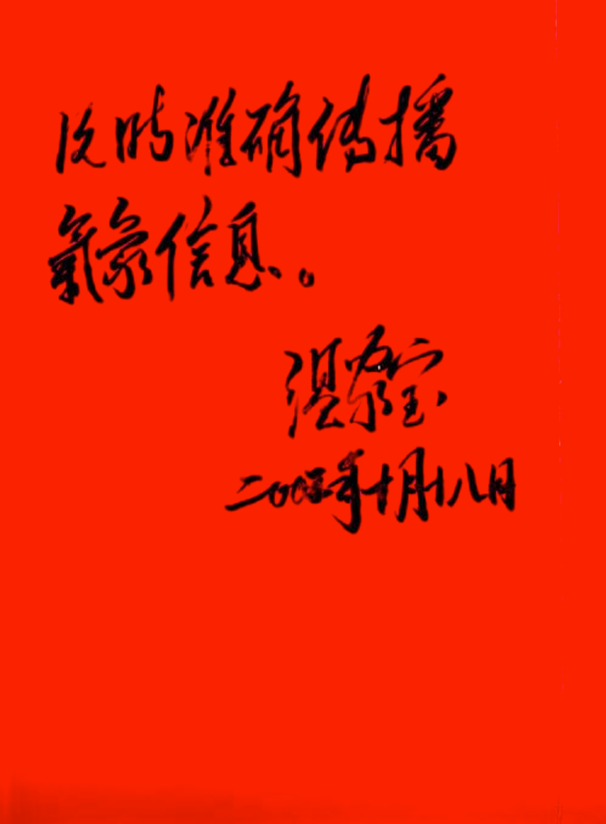 及时准确傳播
氣象信息。
温家宝
二〇〇五年十月十八日